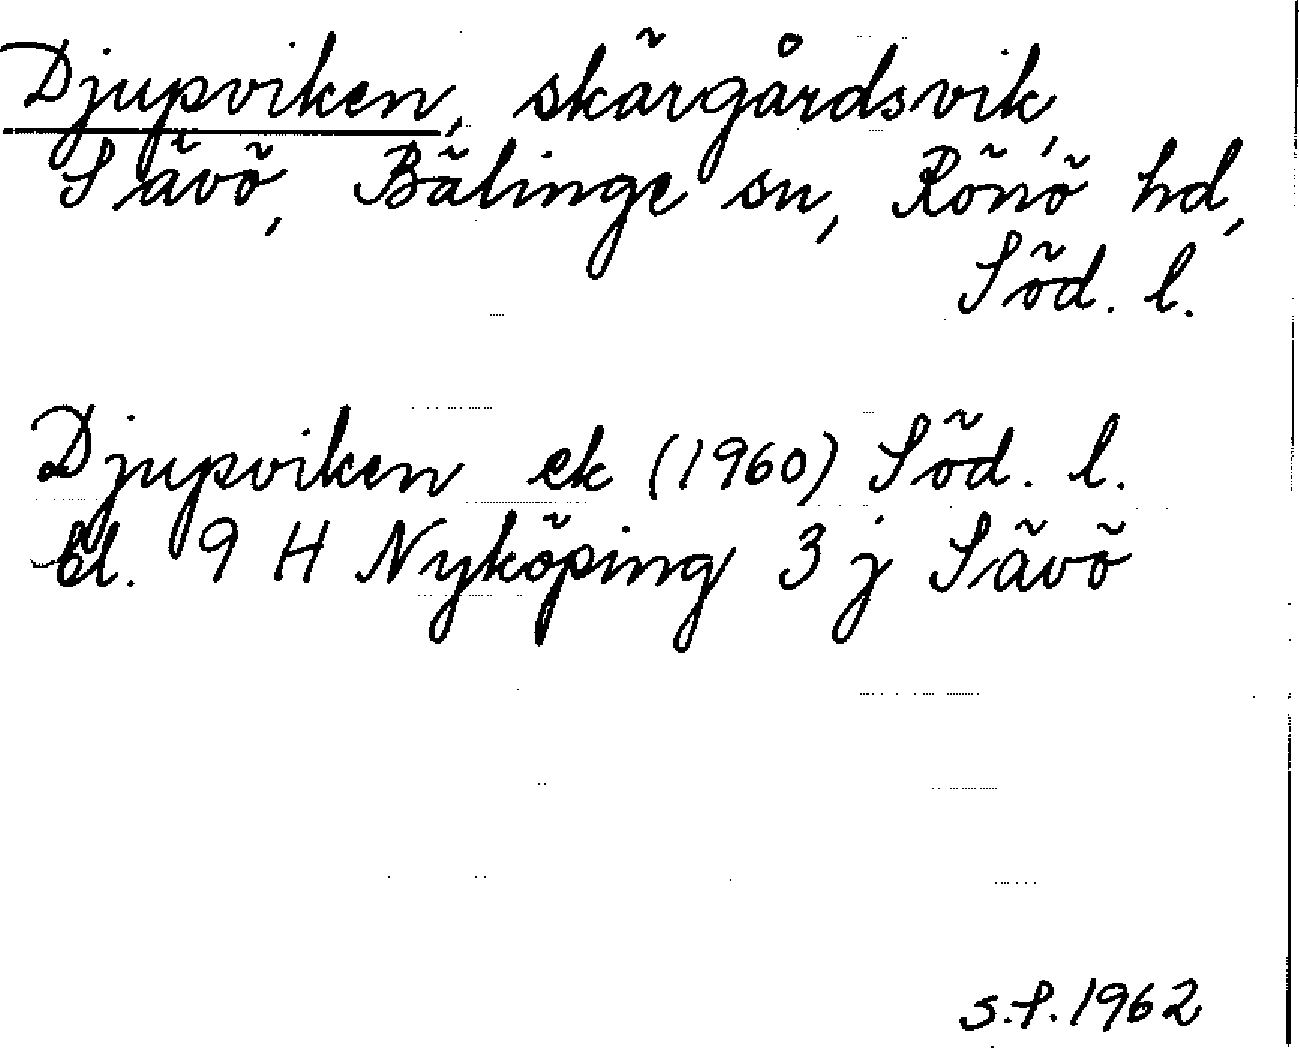 Djupviken, skärgårdsvik,
Sävö, Bälinge sn, Rönö hd,
Söd. l.
Djupviken ek (1960) Söd. l.
bl. 9 H Nyköping 3 j Sävö
S.S. 1962